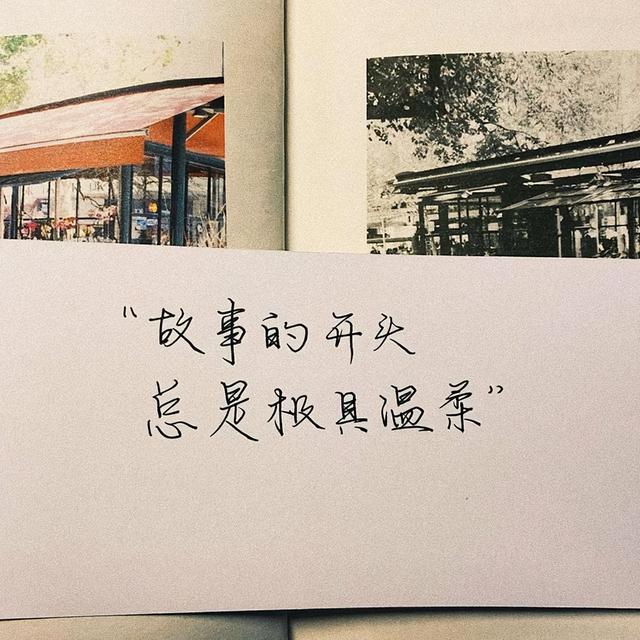 “故事的开头
总是极具温柔”